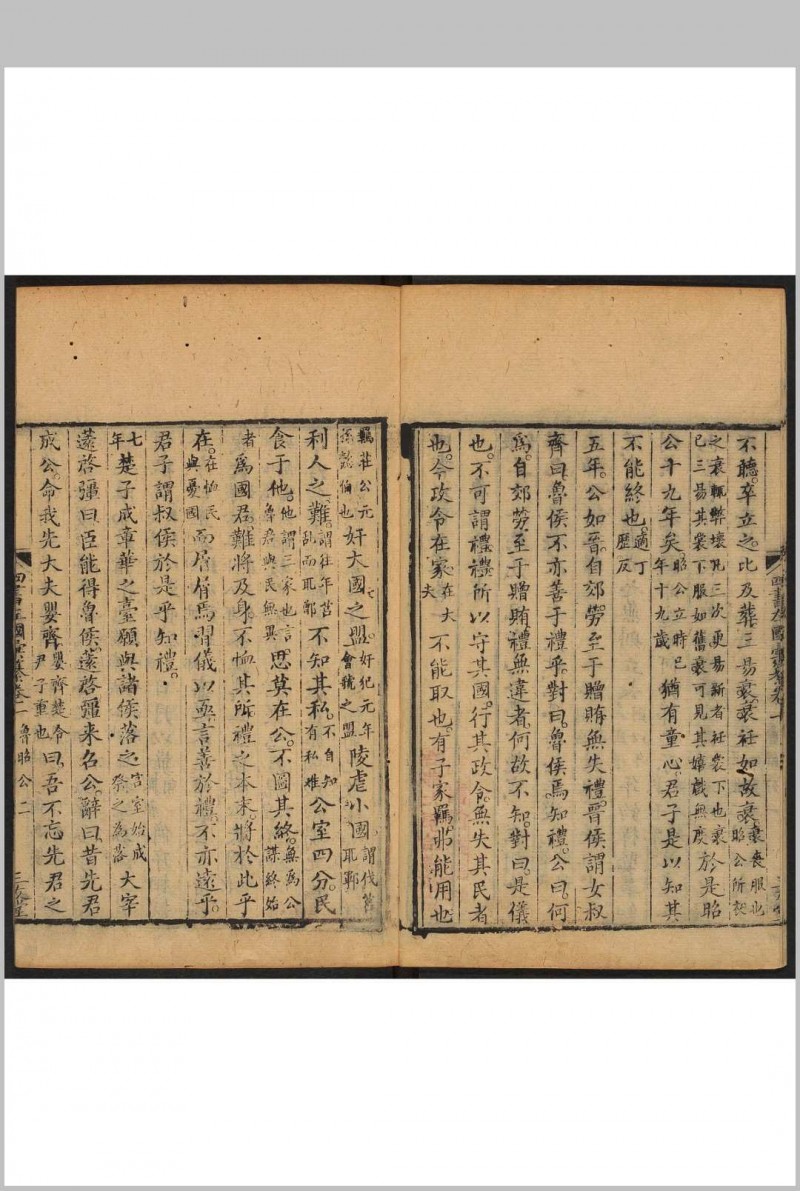 不聽卒立之比及葬三易衰衰衽如故衰衰喪服也昭公所製
之衰輒弊壞凡三次更易斯者衽裳下也衰
已三易其裳下服如舊衰可見其嬉戲無度於是昭
公十九年矣昭公立時已年十九歲猶有童心君子是以知其
不能終也適丁歷反
五年公如晉自郊勞至于贈賄無失禮晉侯謂女叔
齊曰魯侯不亦善于禮乎對曰魯侯焉知禮公曰何
爲自郊勞至于贈賄禮無違者何故不知對曰是儀
也不可謂禮禮所以守其國行其政令無失其民者
也今政令在家在大夫不能取也有子家羈弗能用也
羈莊公元孫懿伯也奸大國之盟奸犯元年會虢之盟陵虐小國謂伐莒取鄆
利人之難謂往年莒乱而取鄫不知其私不自知有私难公室四分民
食于他他謂三家也言魯君與民無異思莫在公不圖其終無爲公謀終始
者爲國君難將及身不恤其所禮之本末將於此乎
在在恤民與憂國而屑屑焉習儀以亟言善於禮不亦遠乎
君子謂叔侯於是乎知禮
七年楚子成章華之臺願與諸侯落之宫室始成祭之為落大宰
薳啓彊曰臣能得魯侯薳啓彊来召公辭曰昔先君
成公命我先大夫嬰齊嬰齊楚令尹子重也曰吾不忘先君之
魯昭公二